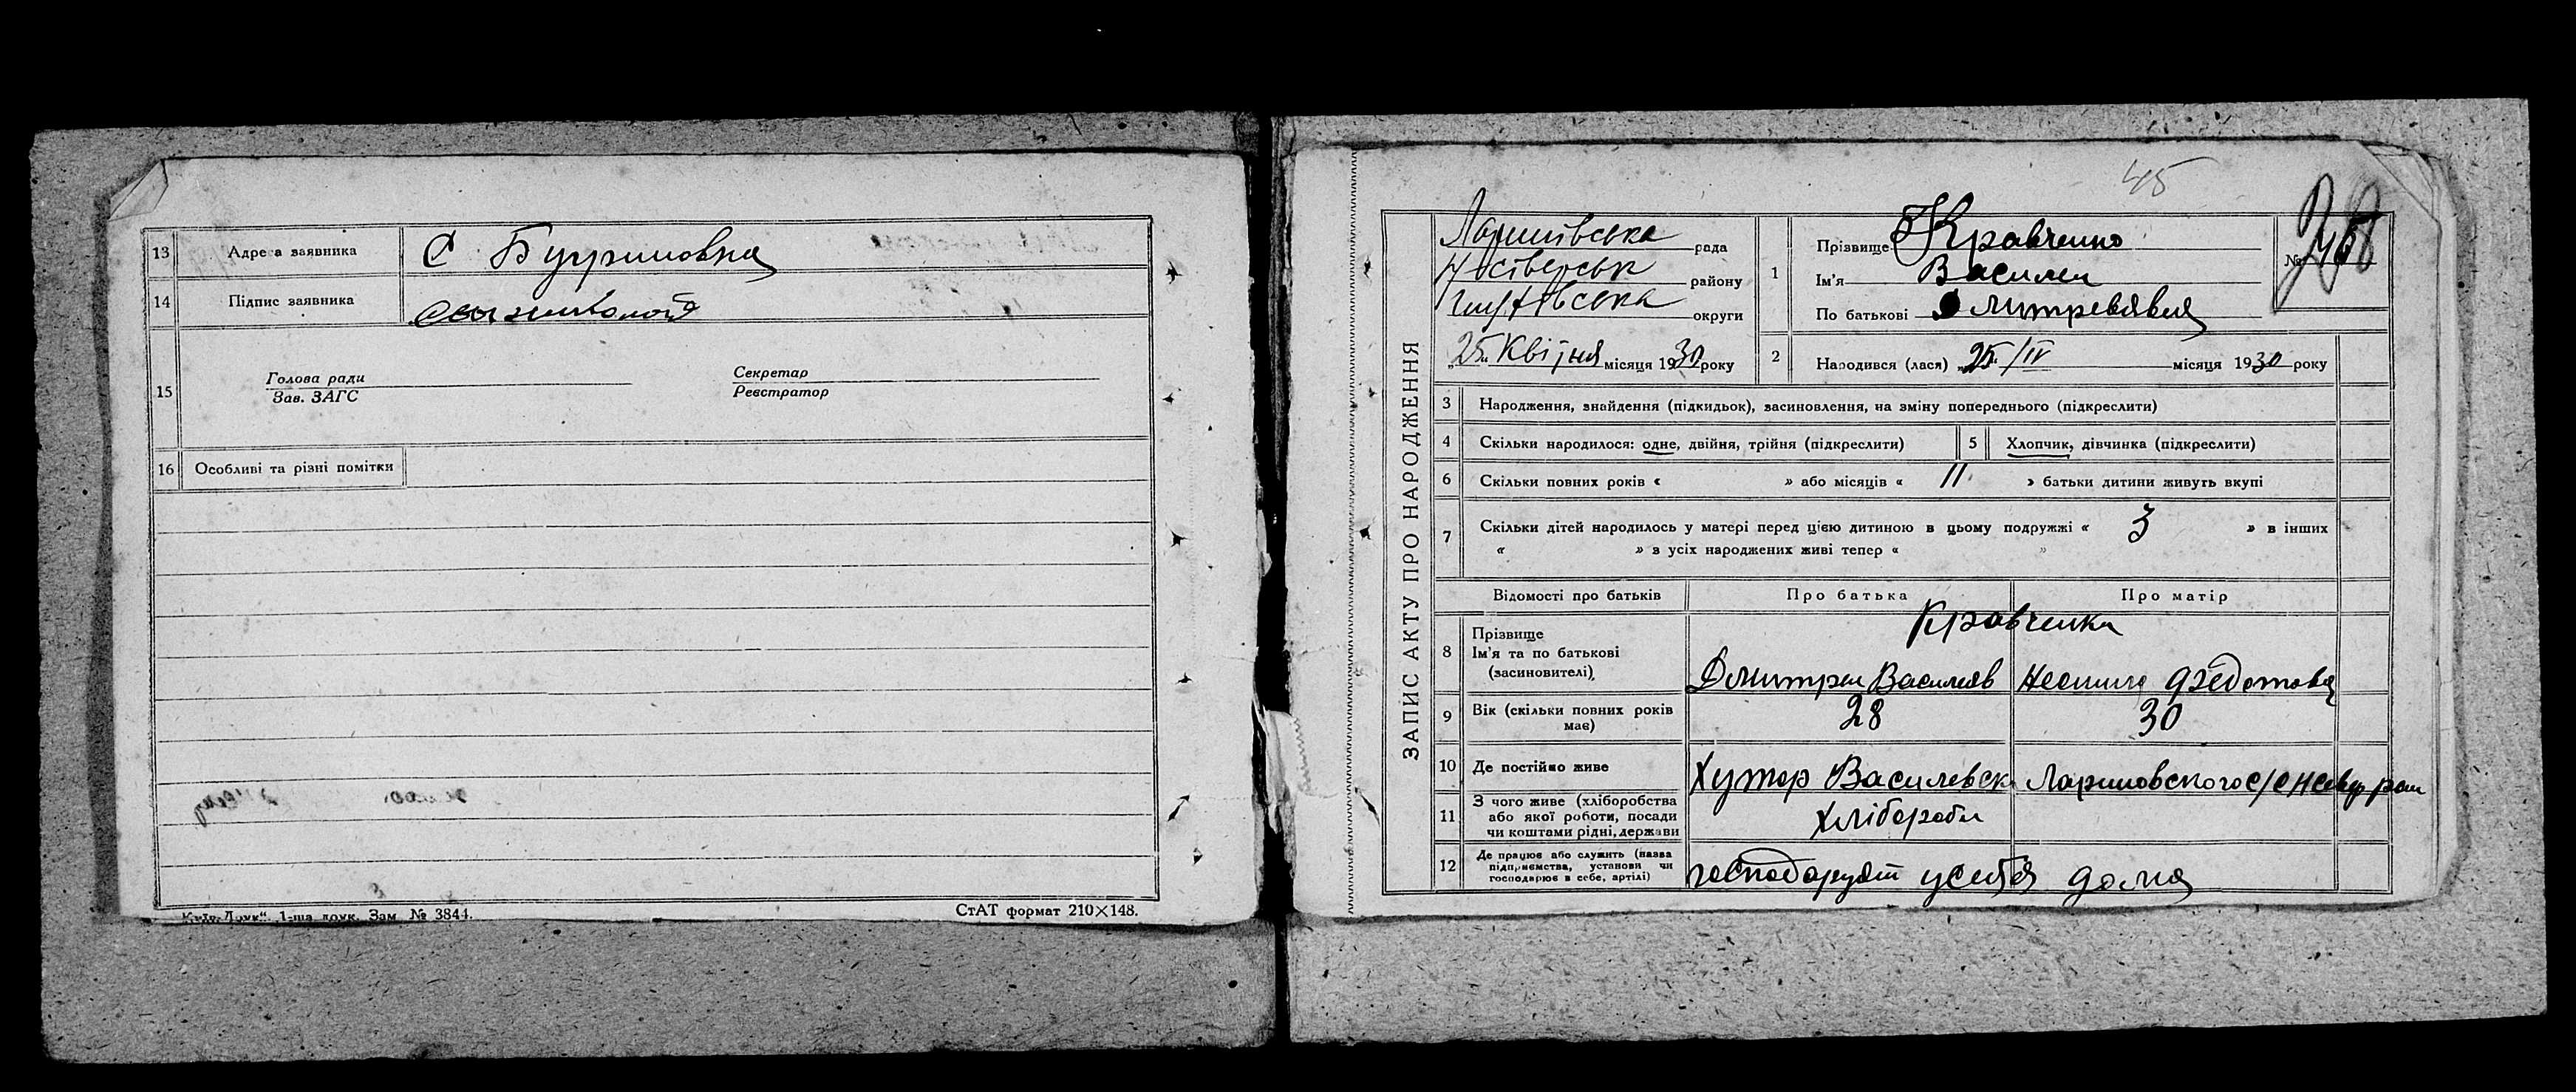 13 Адреса заявника С Бугриновка
14 Підпис заявника
15 Голова ради Секретар
Зав. ЗАГС Реєстратор
16 Особливі та різні помітки
Київ-Друк“. 1-ша друк. Зам. № 3844.
СтАТ формат 210×148.
45
ЗАПИС АКТУ ПРО НАРОДЖЕННЯ
Ларинівська рада
Н Сіверськ району
Глухівська округи
„25„ Квітня місяця 1930 року
1 Прізвище Кравченко
Ім'я Василий
По батькові Дмитревявич
№
2 Народився (лася) „25„/IV місяця 1930 року
3 Народження, знайдення (підкидьок), засиновлення, на зміну попереднього (підкреслити)
4 Скільки народилося: одне, двійня, трійня (підкреслити)
5 Хлопчик, дівчинка (підкреслити)
6 Скільки повних років « » або місяців « 11 » батьки дитини живуть вкупі
7 Скільки дітей народилось у матері перед цією дитиною в цьому подружжі « 3 » в інших
« » в усіх народжених живі тепер « »
Відомості про батьків Про батька Про матір
8 Прізвище
Ім'я та по батькові
(засиновителі)
Кравченки
Дмитрий Василев Федотовня
9 Вік (скільки повних років має) 28 30
10 Де постійно живе Хутор Василевск Лариновского с/с
11 З чого живе (хліборобства
або якої роботи, посади
чи коштами рідні, держави
Хлібороби
12 Де працює або служить (назва
підприємства, установи чи
господарює в себе, артілі)
господарують у себя дома